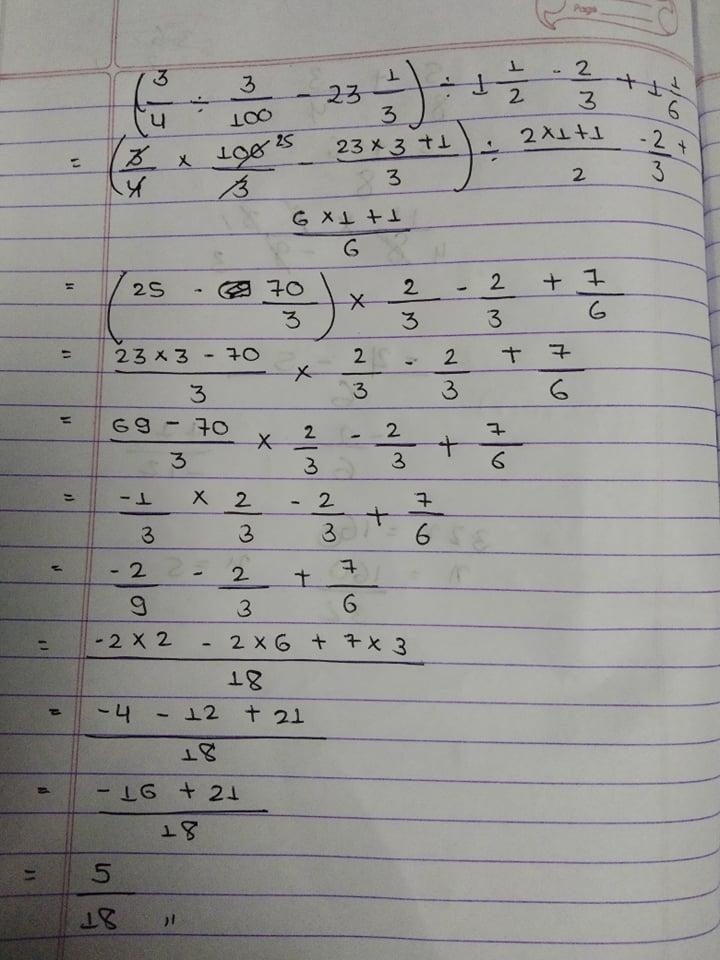 Page
(3/4 ÷ 3/100 - 23 1/3) ÷ 1 1/2 - 2/3 + 1 1/6
= (3/4 × 100 25/3 - 23×3+1/3) ÷ 2×1+1/2 - 2/3 +
6×1+1/6
= (25 - 70/3) × 2/3 - 2/3 + 7/6
= 23×3-70/3 × 2/3 - 2/3 + 7/6
= 69-70/3 × 2/3 - 2/3 + 7/6
= -1/3 × 2/3 - 2/3 + 7/6
= -2/9 - 2/3 + 7/6
= -2×2 - 2×6 + 7×3/18
= -4 - 12 + 21/18
= -16 + 21/18
= 5/18 "